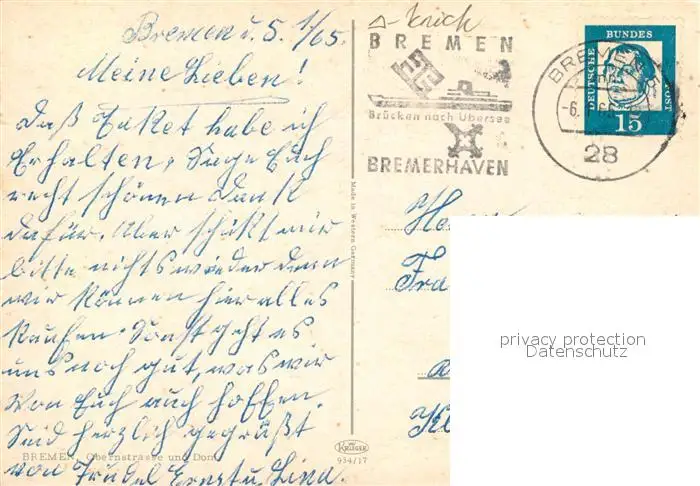 Bremen d. 5. 1/65.
Meine Lieben!
Daß Paket habe ich
Erhalten, Sage Euch
recht schönen Dank
dafür. Aber schikt mir
bitte nichts wieder denn
wir können hier alles
kaufen. Sonst geht es
uns noch gut, was wir
von Euch auch hoffen.
Seid herzlich gegrüßt
von Trudel Ernst u. Lina.
BREMEN, Obernstrasse und Dom
Made in Western Germany
KRÜGER
934/17
BREMEN
Brücken nach Übersee
BREMERHAVEN
BREMEN
-6.
28
DEUTSCHE BUNDESPOST
15
Fra
privacy protection
Datenschutz